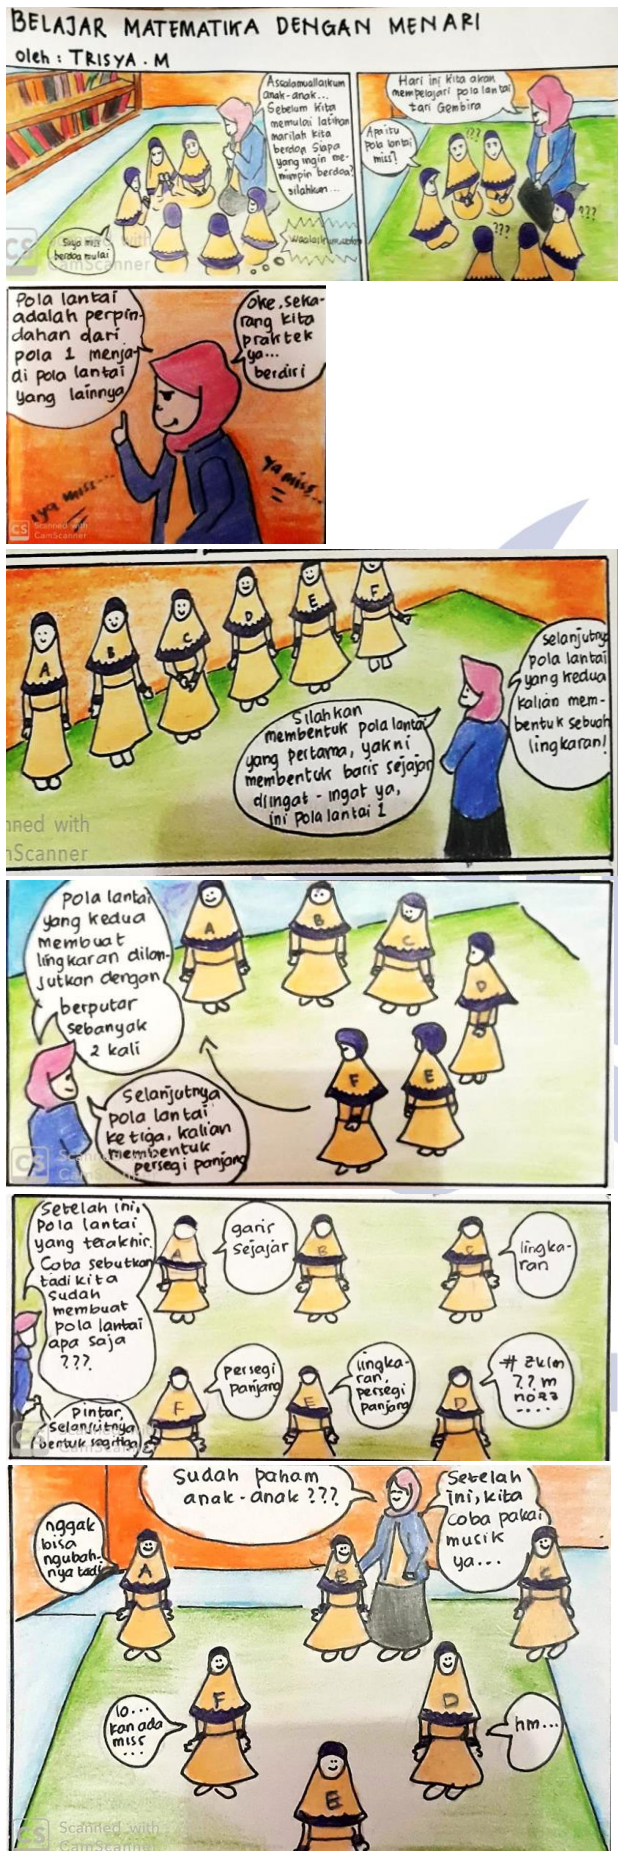 BELAJAR MATEMATIKA DENGAN MENARI
oleh : TRISYA . M
Assalamuallaikum
anak-anak...
Sebelum kita
memulai latihan
marilah kita
berdoa. Siapa
yang ingin me-
mimpin berdoa?
silahkan...
Saya miss
berdoa mulai
Hari ini kita akan
mempelajari pola lantai
tari Gembira
Apa itu
pola lantai
miss?
???
???
???
CS
CamScanner
Pola lantai
adalah perpin-
dahan dari
pola 1 menja-
di pola lantai
yang lainnya
Oke, seka-
rang kita
praktek
ya...
berdiri
iya miss...
Ya miss...
CS Scanned with
CamScanner
A
B
C
D
E
F
Silahkan
membentuk pola lantai
yang pertama, yakni
membentuk baris sejajar
diingat - ingat ya,
ini pola lantai 1
selanjutnya
pola lantai
yang kedua
kalian mem-
bentuk sebuah
lingkaran!
nned with
nScanner
Pola lantai
yang kedua
membuat
lingkaran dilan-
jutkan dengan
berputar
sebanyak
2 kali
A
B
C
D
E
F
Selanjutnya
pola lantai
ketiga, kalian
membentuk
persegi panjang
CS
Setelah ini,
pola lantai
yang terakhir.
Coba sebutkan
tadi kita
sudah
membuat
pola lantai
apa saja
???
A
garis
sejajar
B
C
lingka-
ran
F
persegi
panjang
E
lingka-
ran,
persegi
panjang
D
Pintar,
selanjutnya
bentuk segitiga
Sudah paham
anak-anak ???
Setelah
ini, kita
coba pakai
musik
ya...
nggak
bisa
ngubah-
nya tadi
A
B
C
F
D
E
lo...
kan ada
miss
...
hm...
CS Scanned with
CamScanner